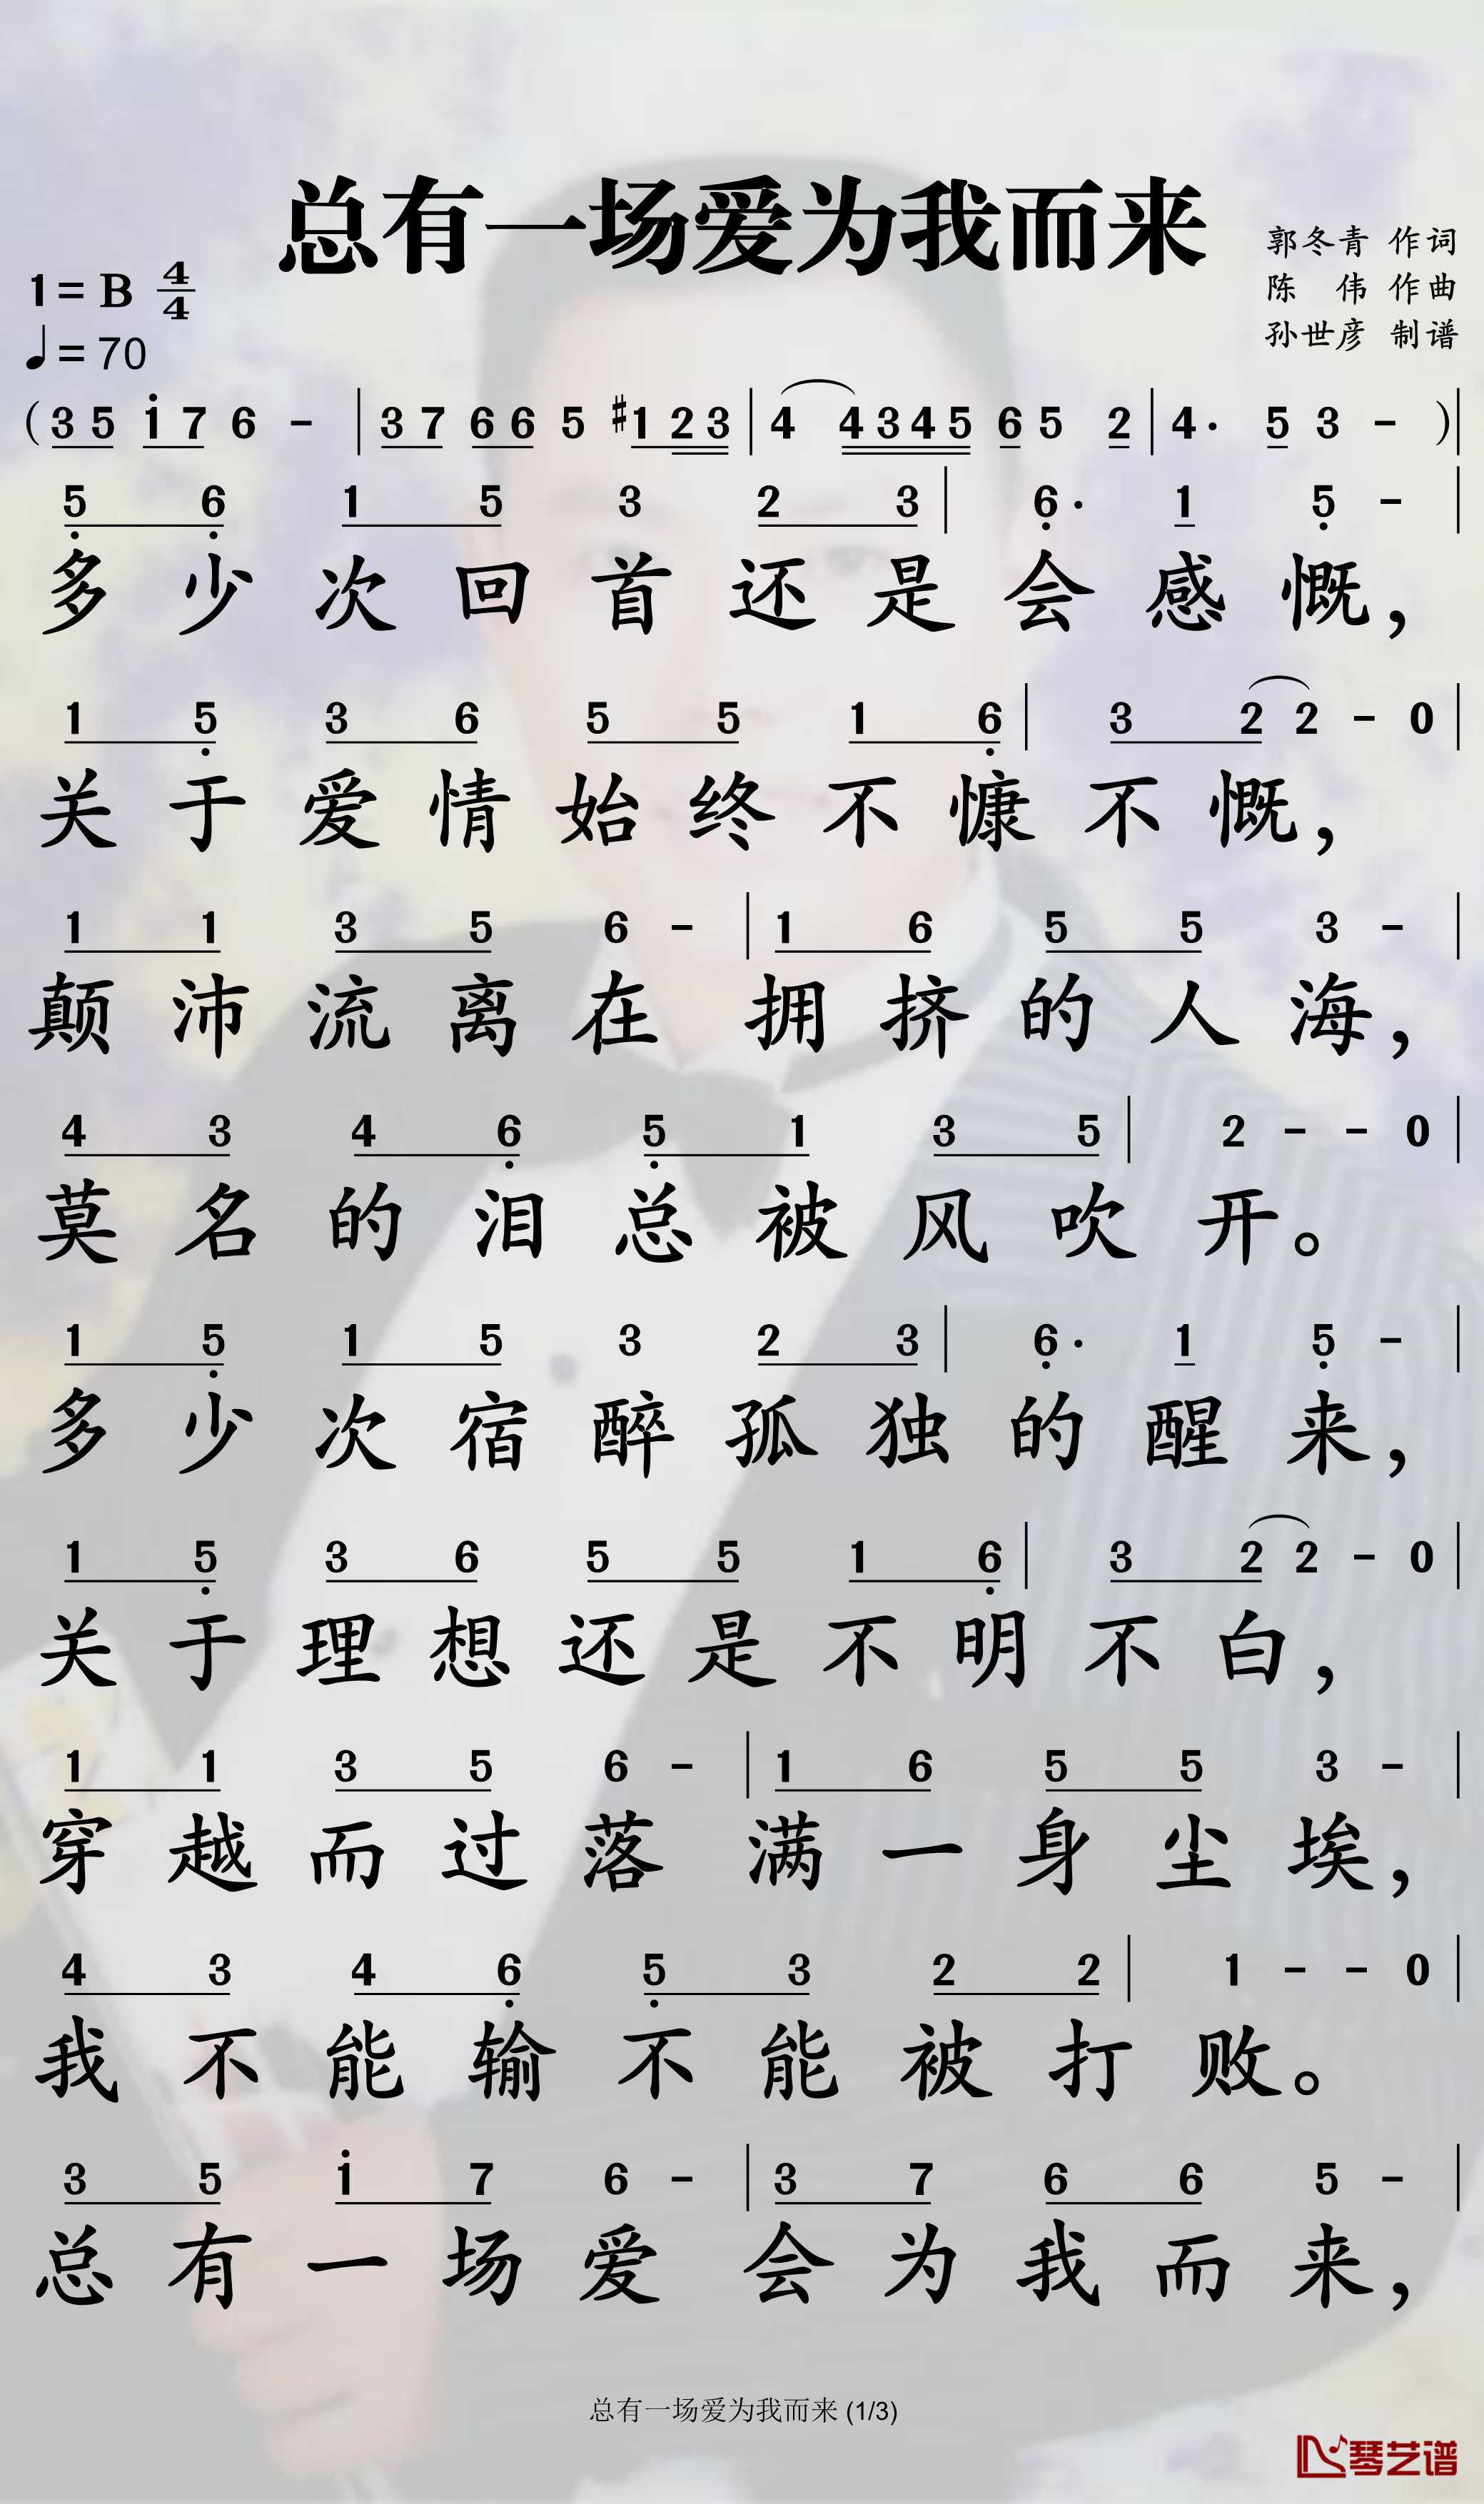 总有一场爱为我而来
郭冬青 作词
1= B 4/4
陈 伟 作曲
♩= 70
孙世彦 制谱
( 3 5 i 7 6 - | 3 7 6 6 5 #1 2 3 | 4 4 3 4 5 6 5 2 | 4· 5 3 - ) |
5̣ 6̣ 1 5 3 2 3 | 6̣· 1 5̣ - |
多少次回首还是会感慨，
1 5̣ 3 6 5 5 1 6̣ | 3 2 2 - 0 |
关于爱情始终不慷不慨，
1 1 3 5 6 - | 1 6 5 5 3 - |
颠沛流离在拥挤的人海，
4 3 4 6̣ 5̣ 1 3 5 | 2 - - 0 |
莫名的泪总被风吹开。
1 5̣ 1 5 3 2 3 | 6̣· 1 5̣ - |
多少次宿醉孤独的醒来，
1 5̣ 3 6 5 5 1 6̣ | 3 2 2 - 0 |
关于理想还是不明不白，
1 1 3 5 6 - | 1 6 5 5 3 - |
穿越而过落满一身尘埃，
4 3 4 6̣ 5̣ 3 2 2 | 1 - - 0 |
我不能输不能被打败。
3 5 i 7 6 - | 3 7 6 6 5 - |
总有一场爱会为我而来，
总有一场爱为我而来 (1/3)
琴艺谱